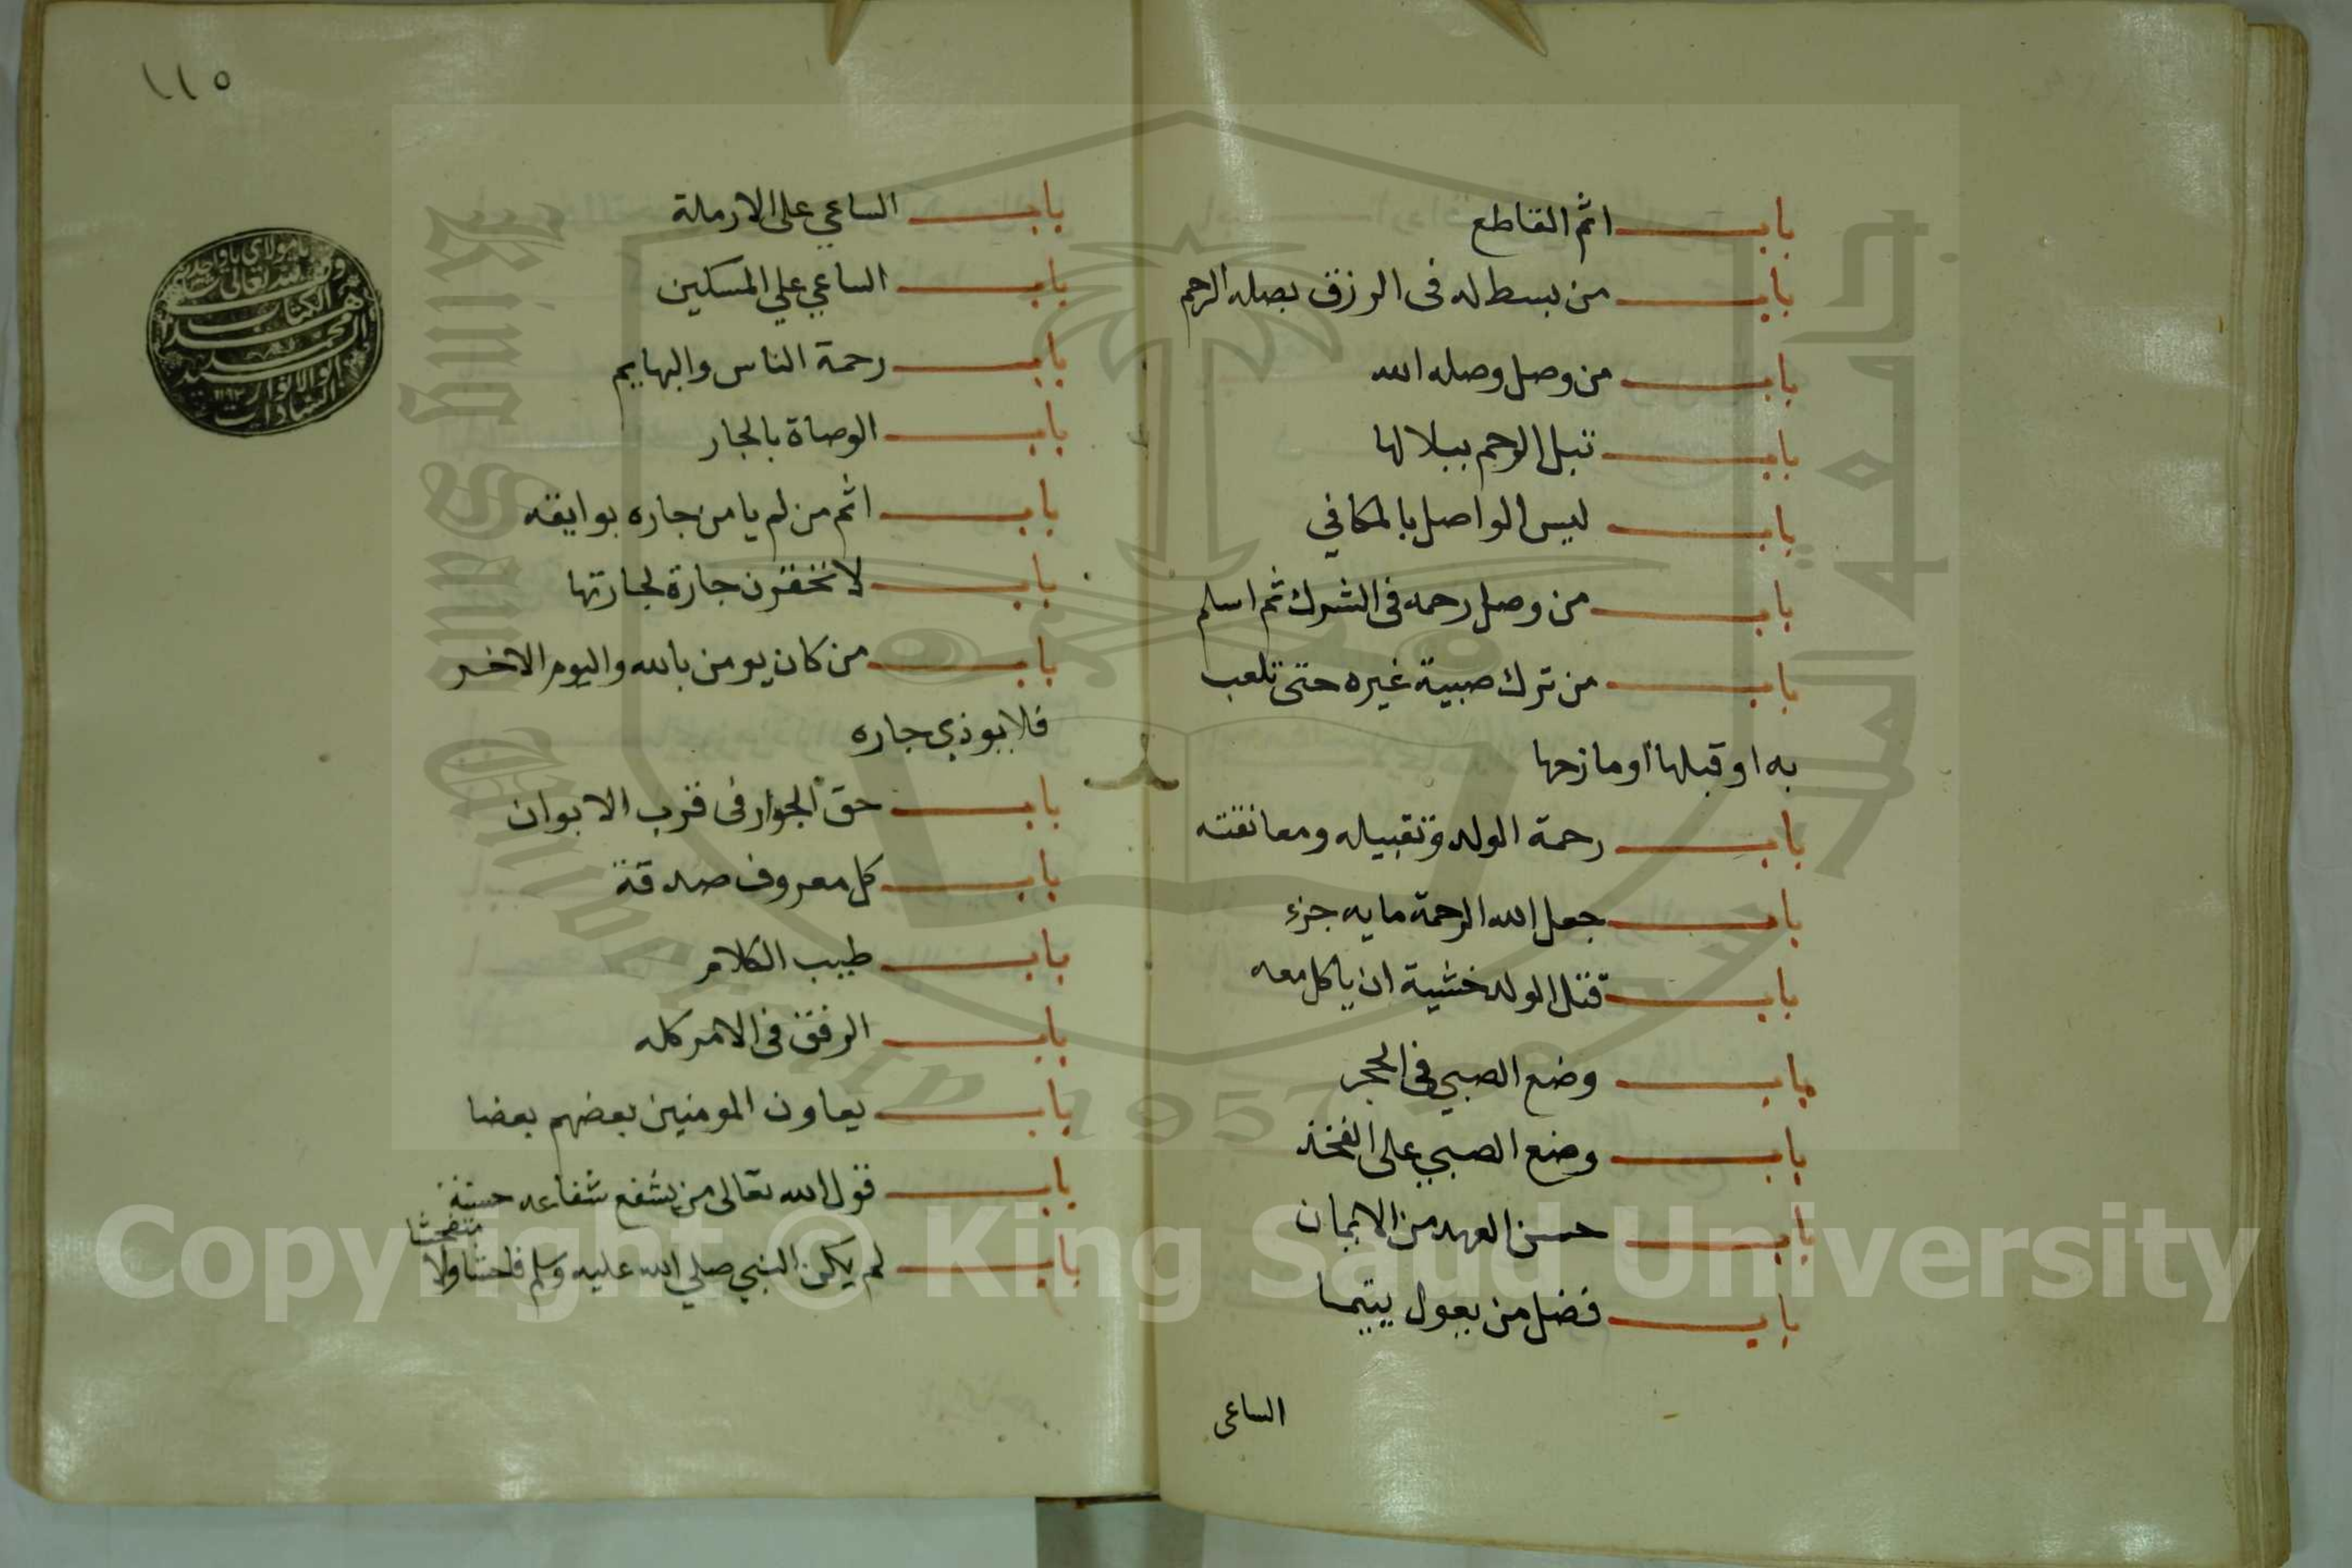 باب اثم القاطع
باب من بسط له فى الرزق بصله الرحم
باب من وصل وصله الله
باب تبل الرحم ببلالها
باب ليس الواصل بالمكافي
باب من وصل رحمه فى الشرك ثم اسلم
باب من ترك صبية غيره حتى تلعب
به او قبلها او مازحها
باب رحمة الولد وتقبيله ومعانقته
باب جعل الله الرحمة مايه جزء
باب قتل الولد خشية ان ياكل معه
باب وضع الصبي فى الحجر
باب وضع الصبي على الفخذ
باب حسن العهد من الايمان
باب فضل من يعول يتيما
الساعى
١١٥
باب الساعي على الارملة
باب الساعي علي المسكين
باب رحمة الناس والبهايم
باب الوصاة بالجار
باب اثم من لم يامن جاره بوايقه
باب لا تحقرن جارة لجارتها
باب من كان يومن بالله واليوم الاخر
فلا يوذي جاره
باب حق الجوار فى قرب الابواب
باب كل معروف صدقة
باب طيب الكلام
باب الرفق فى الامر كله
باب يعاون المومنين بعضهم بعضا
باب قول الله تعالى من يشفع شفاعه حسنة
باب لم يكن النبي صلي الله عليه وسلم فاحشا ولا
متفحشا
يا مولاي يا واحد
وقف لله تعالى
هذا الكتاب
محمد
ابو الانوار
السادات
١١٩٢
Copyright © King Saud University
King Saud University
1957
جامعة الملك سعود